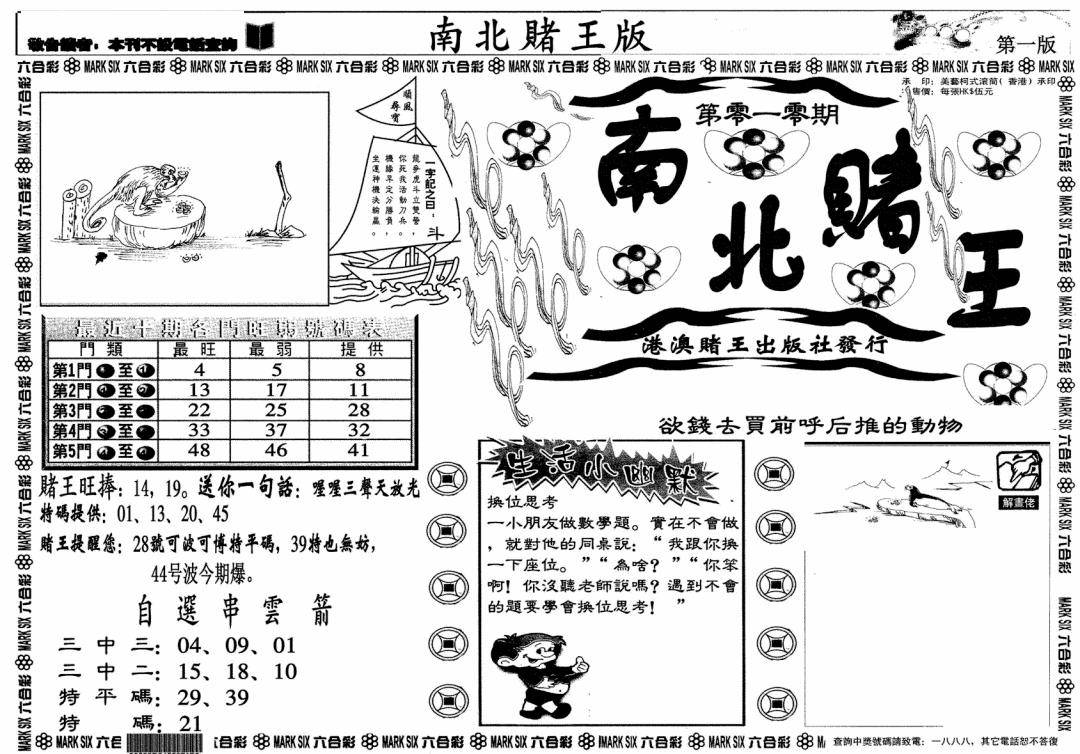 敬告讀者：本刊不設電話查詢
南北賭王版
第一版
六合彩 MARK SIX 六合彩 MARK SIX 六合彩 MARK SIX 六合彩 MARK SIX 六合彩 MARK SIX 六合彩 MARK SIX 六合彩 MARK SIX 六合彩 MARK SIX 六合彩 MARK SIX 六合彩 MARK SIX
承 印：美藝柯式滾筒（香港）承印
售價：每張HK$伍元
順風
尋寶
一字記之曰：斗
龍爭虎斗立雙營，
你死我活動刀兵。
機緣早定分勝負，
坐運神機決輸贏。
第零一零期
南北賭王
港澳賭王出版社發行
最近十期各門旺弱號碼表
門類 最旺 最弱 提供
第1門 至 4 5 8
第2門 至 13 17 11
第3門 至 22 25 28
第4門 至 33 37 32
第5門 至 48 46 41
賭王旺捧：14，19。送你一句話：喔喔三聲天放光
特碼提供：01、13、20、45
賭王提醒您：28號可波可博特平碼，39特也無妨，
44号波今期爆。
自選串雲箭
三中三：04、09、01
三中二：15、18、10
特平碼：29、39
特碼：21
欲錢去買前呼后推的動物
生活小幽默
換位思考
一小朋友做數學題。實在不會做
，就對他的同桌說：“我跟你換
一下座位。”“為啥？”“你笨
啊！你沒聽老師說嗎？遇到不會
的題要學會換位思考！ ”
解畫佬
MARK SIX 六合彩 MARK SIX 六合彩 MARK SIX 六合彩 MARK SIX 六合彩 MARK SIX 六合彩
查詢中獎號碼請致電：一八八八，其它電話恕不答復